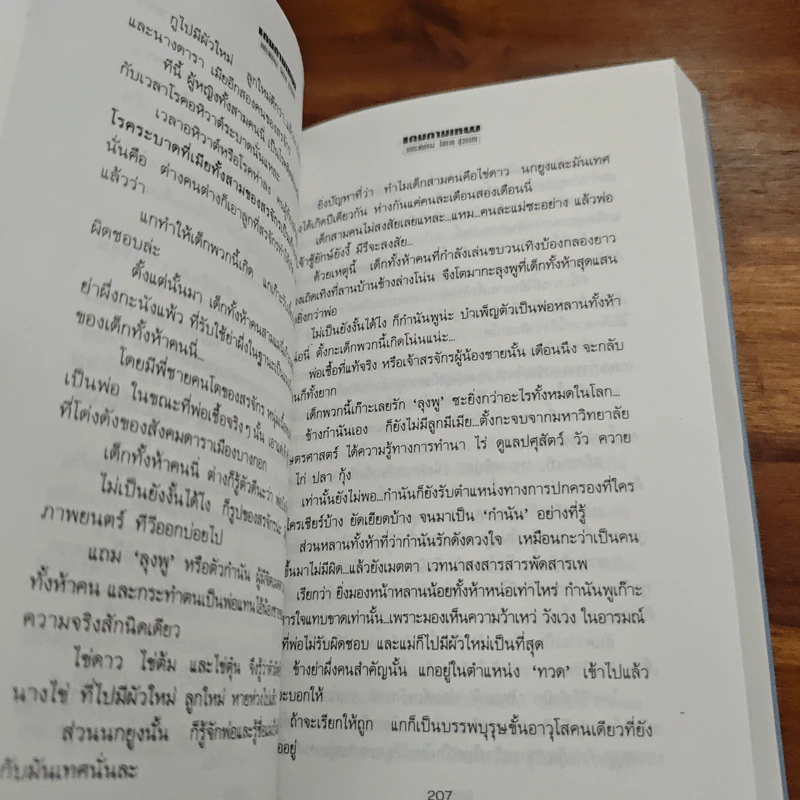 กูไปมีผัวใหม่ ลูกใหม่ดีกว่า
และนางดารา เมียอีกสองคนของสรจักร
ทีนี้ ผู้หญิงทั้งสามคนนี่
กับเวลาโรคอหิวาต์ระบาดนั่นแหละ
เวลาอหิวาต์หรือโรคห่าลง
โรคระบาดที่เมียทั้งสามของสรจักร
นั่นคือ ต่างคนต่างก็เอาลูกที่สรจักร
แล้วว่า
แกทำให้เด็กพวกนี้เกิด
ผิดชอบล่ะ
ตั้งแต่นั้นมา เด็กทั้งห้าคน
ย่าผึ่งกะนังแพ้ว ที่รับใช้ย่าผึ่งในฐานะ
ของเด็กทั้งห้าคนนี่...
โดยมีพี่ชายคนโตของสรจักร
เป็นพ่อ ในขณะที่พ่อเชื้อจริงๆ นั้น
ที่โด่งดังของสังคมดาราเมืองบางกอก
เด็กทั้งห้าคนนี่ ต่างก็รู้ตัวดีนะว่า
ไม่เป็นยังงั้นได้ไง ก็รูปของสรจักรน่ะ
ภาพยนตร์ ทีวีออกบ่อยไป
แถม 'ลุงพู' หรือตัวกำนัน
ทั้งห้าคน และกระทำตนเป็นพ่อแทน
ความจริงสักนิดเดียว
ไข่ดาว ไข่ต้ม และไข่ตุ๋น
นางไข่ ที่ไปมีผัวใหม่ ลูกใหม่
ส่วนนกยูงนั้น ก็รู้จักพ่อและ
กับมันเทศนั่นละ
เกมกามเทพ
ยังปัญหาที่ว่า ทำไมเด็กสามคนคือไข่ดาว นกยูงและมันเทศ
ได้เกิดปีเดียวกัน ห่างกันแค่คนละเดือนสองเดือนนี่
เด็กสามคนไม่สงสัยเลยแหละ...แหม...คนละแม่ซะอย่าง แล้วพ่อ
เจ้าชู้ยักษ์ยังงี้ มีรึจะสงสัย...
ด้วยเหตุนี้ เด็กทั้งห้าคนที่กำลังเล่นขบวนเทิงบ้องกลองยาว
เถิดเทิงที่ลานบ้านข้างล่างโน่น จึงโตมากะลุงพูที่เด็กทั้งห้าสุดแสน
ยิ่งกว่าพ่อ
ไม่เป็นยังงั้นได้ไง ก็กำนันพูน่ะ บำเพ็ญตัวเป็นพ่อหลานทั้งห้า
นี่ ตั้งกะเด็กพวกนี้เกิดโน่นแน่ะ...
พ่อเชื้อที่แท้จริง หรือเจ้าสรจักรผู้น้องชายนั้น เดือนนึง จะกลับ
ก็ทั้งยาก
เด็กพวกนี้เก๊าะเลยรัก 'ลุงพู' ซะยิ่งกว่าอะไรทั้งหมดในโลก...
ข้างกำนันเอง ก็ยังไม่มีลูกมีเมีย...ตั้งกะจบจากมหาวิทยาลัย
เกษตรศาสตร์ ได้ความรู้ทางการทำนา ไร่ ดูแลปศุสัตว์ วัว ควาย
ไก่ ปลา กุ้ง
เท่านั้นยังไม่พอ...กำนันก็ยังรับตำแหน่งทางการปกครองที่ใคร
ใครเชียร์บ้าง ยัดเยียดบ้าง จนมาเป็น 'กำนัน' อย่างที่รู้
ส่วนหลานทั้งห้าที่ว่ากำนันรักดังดวงใจ เหมือนกะว่าเป็นคน
ขึ้นมาไม่มีผิด...แล้วยังเมตตา เวทนาสงสารสารพัดสารเพ
เรียกว่า ยิ่งมองหน้าหลานน้อยทั้งห้าหน่อเท่าไหร่ กำนันพูเก๊าะ
สารใจแทบขาดเท่านั้น...เพราะมองเห็นความว้าเหว่ วังเวง ในอารมณ์
ที่พ่อไม่รับผิดชอบ และแม่ก็ไปมีผัวใหม่เป็นที่สุด
ข้างย่าผึ่งคนสำคัญนั้น แกอยู่ในตำแหน่ง 'ทวด' เข้าไปแล้ว
จะบอกให้
ถ้าจะเรียกให้ถูก แกก็เป็นบรรพบุรุษขั้นอาวุโสคนเดียวที่ยัง
อยู่
207